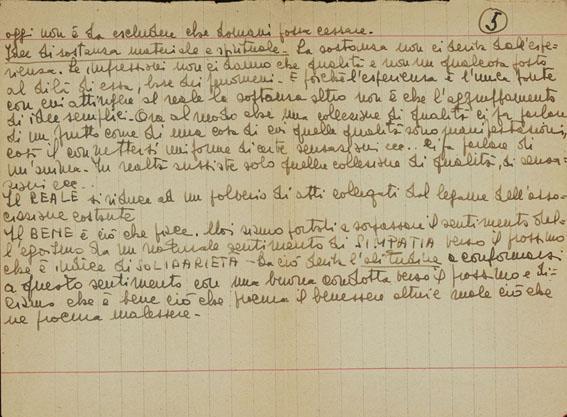 5
oggi non è da escludere che domani possa cessare.
Idea di sostanza materiale e spirituale. La sostanza non ci deriva dall'espe-
rienza. Le impressioni non ci danno che qualità e non un qualcosa posto
al di là di essa, base dei fenomeni. E poiché l'esperienza è l'unica fonte
con cui attingere al reale la sostanza altro non è che l'aggruppamento
di idee semplici. Ora al modo che una collezione di qualità ci fa parlare
di un frutto come di una cosa di cui quelle qualità sono manifestazioni,
così il connettersi uniforme di certe sensazioni ecc... ci fa parlare di
un'anima. In realtà sussiste solo quella collezione di qualità, di sensa-
zioni ecc...
Il REALE si riduce ad un polverio di atti collegati dal legame dell'asso-
ciazione costante
Il BENE è ciò che piace. Noi siamo portati a sorpassare il sentimento del-
l'egoismo da un naturale sentimento di SIMPATIA verso il prossimo
che è indice di SOLIDARIETÀ - Da ciò deriva l'abitudine a conformarsi
a questo sentimento con una buona condotta verso il prossimo e di-
ciamo che è bene ciò che procura il benessere altrui e male ciò che
ne procura malessere. -